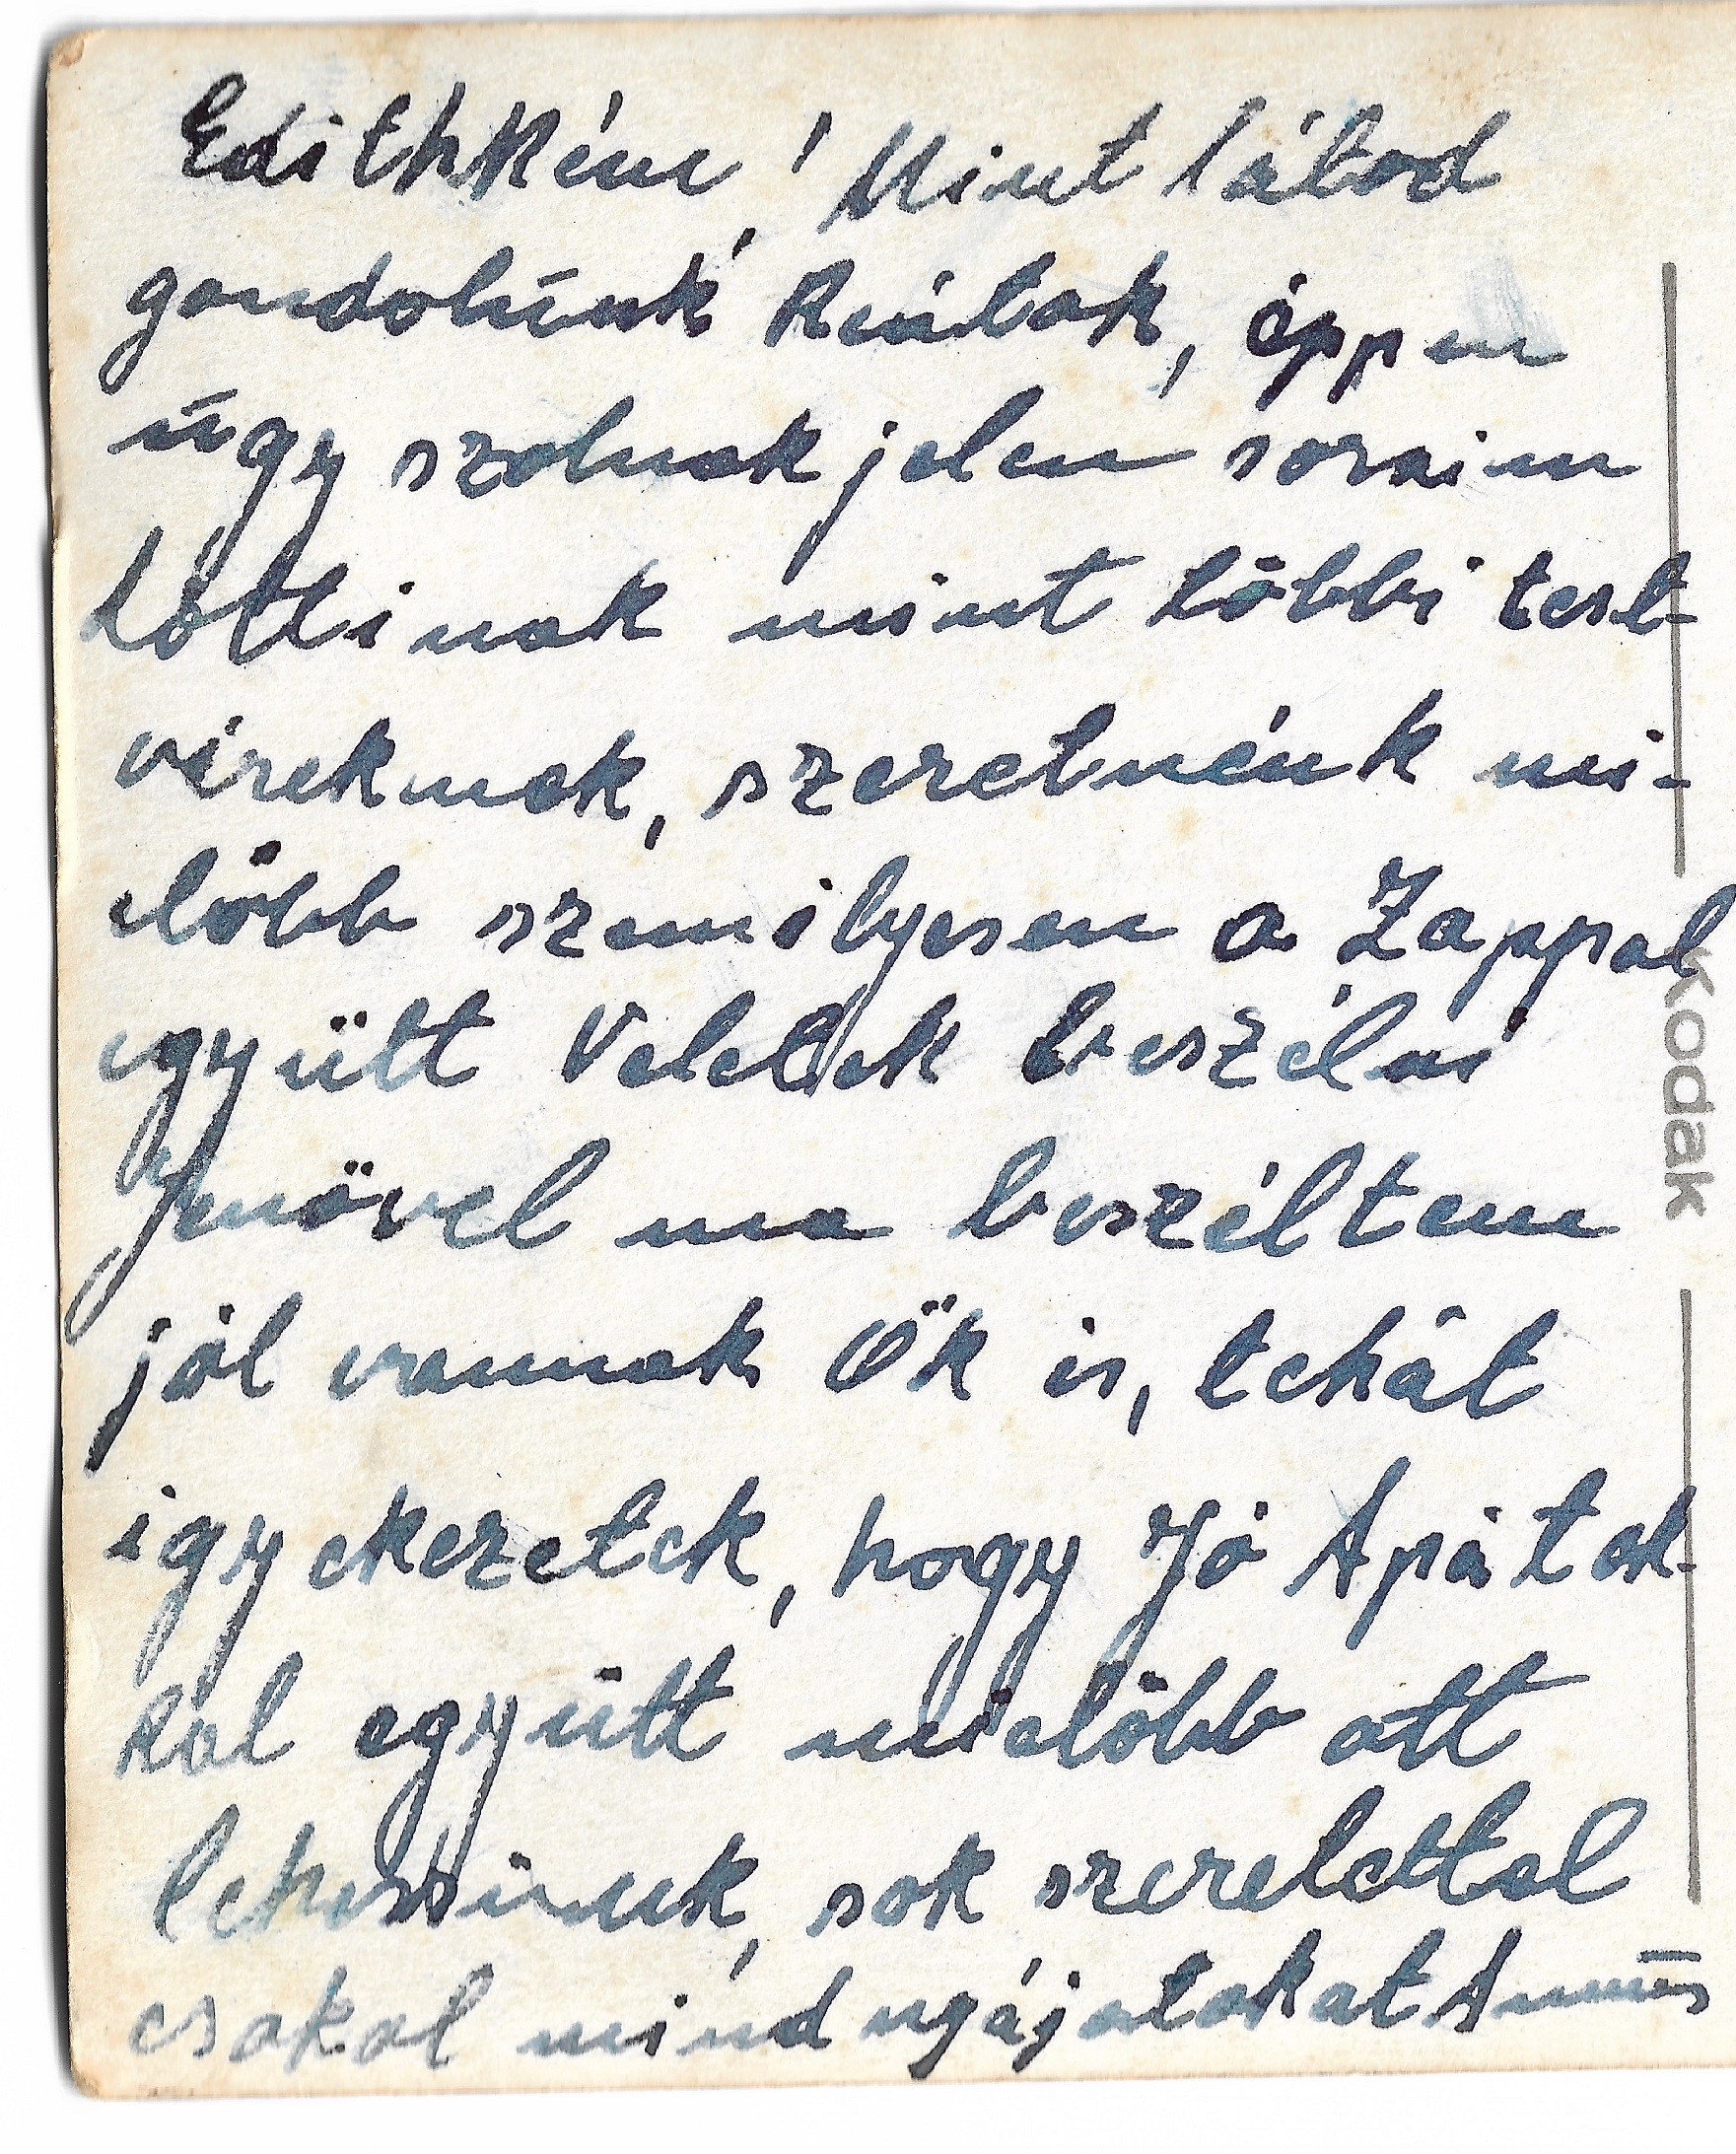 Edithkém! Mint látod
gondolunk Reátok, éppen
úgy szolnak jelen soraim
Lottinak mint többi test-
véreknek, szeretnénk mi-
előbb személyesen a Zappal
együtt Veletek beszélni
Jenövel ma beszéltem
jól vannak Ők is, tehát
igyekezetek, hogy Jó Apátok-
kal együtt mielöbb ott
lehessünk, sok szeretettel
csokol mindnyájatokat
Kodak